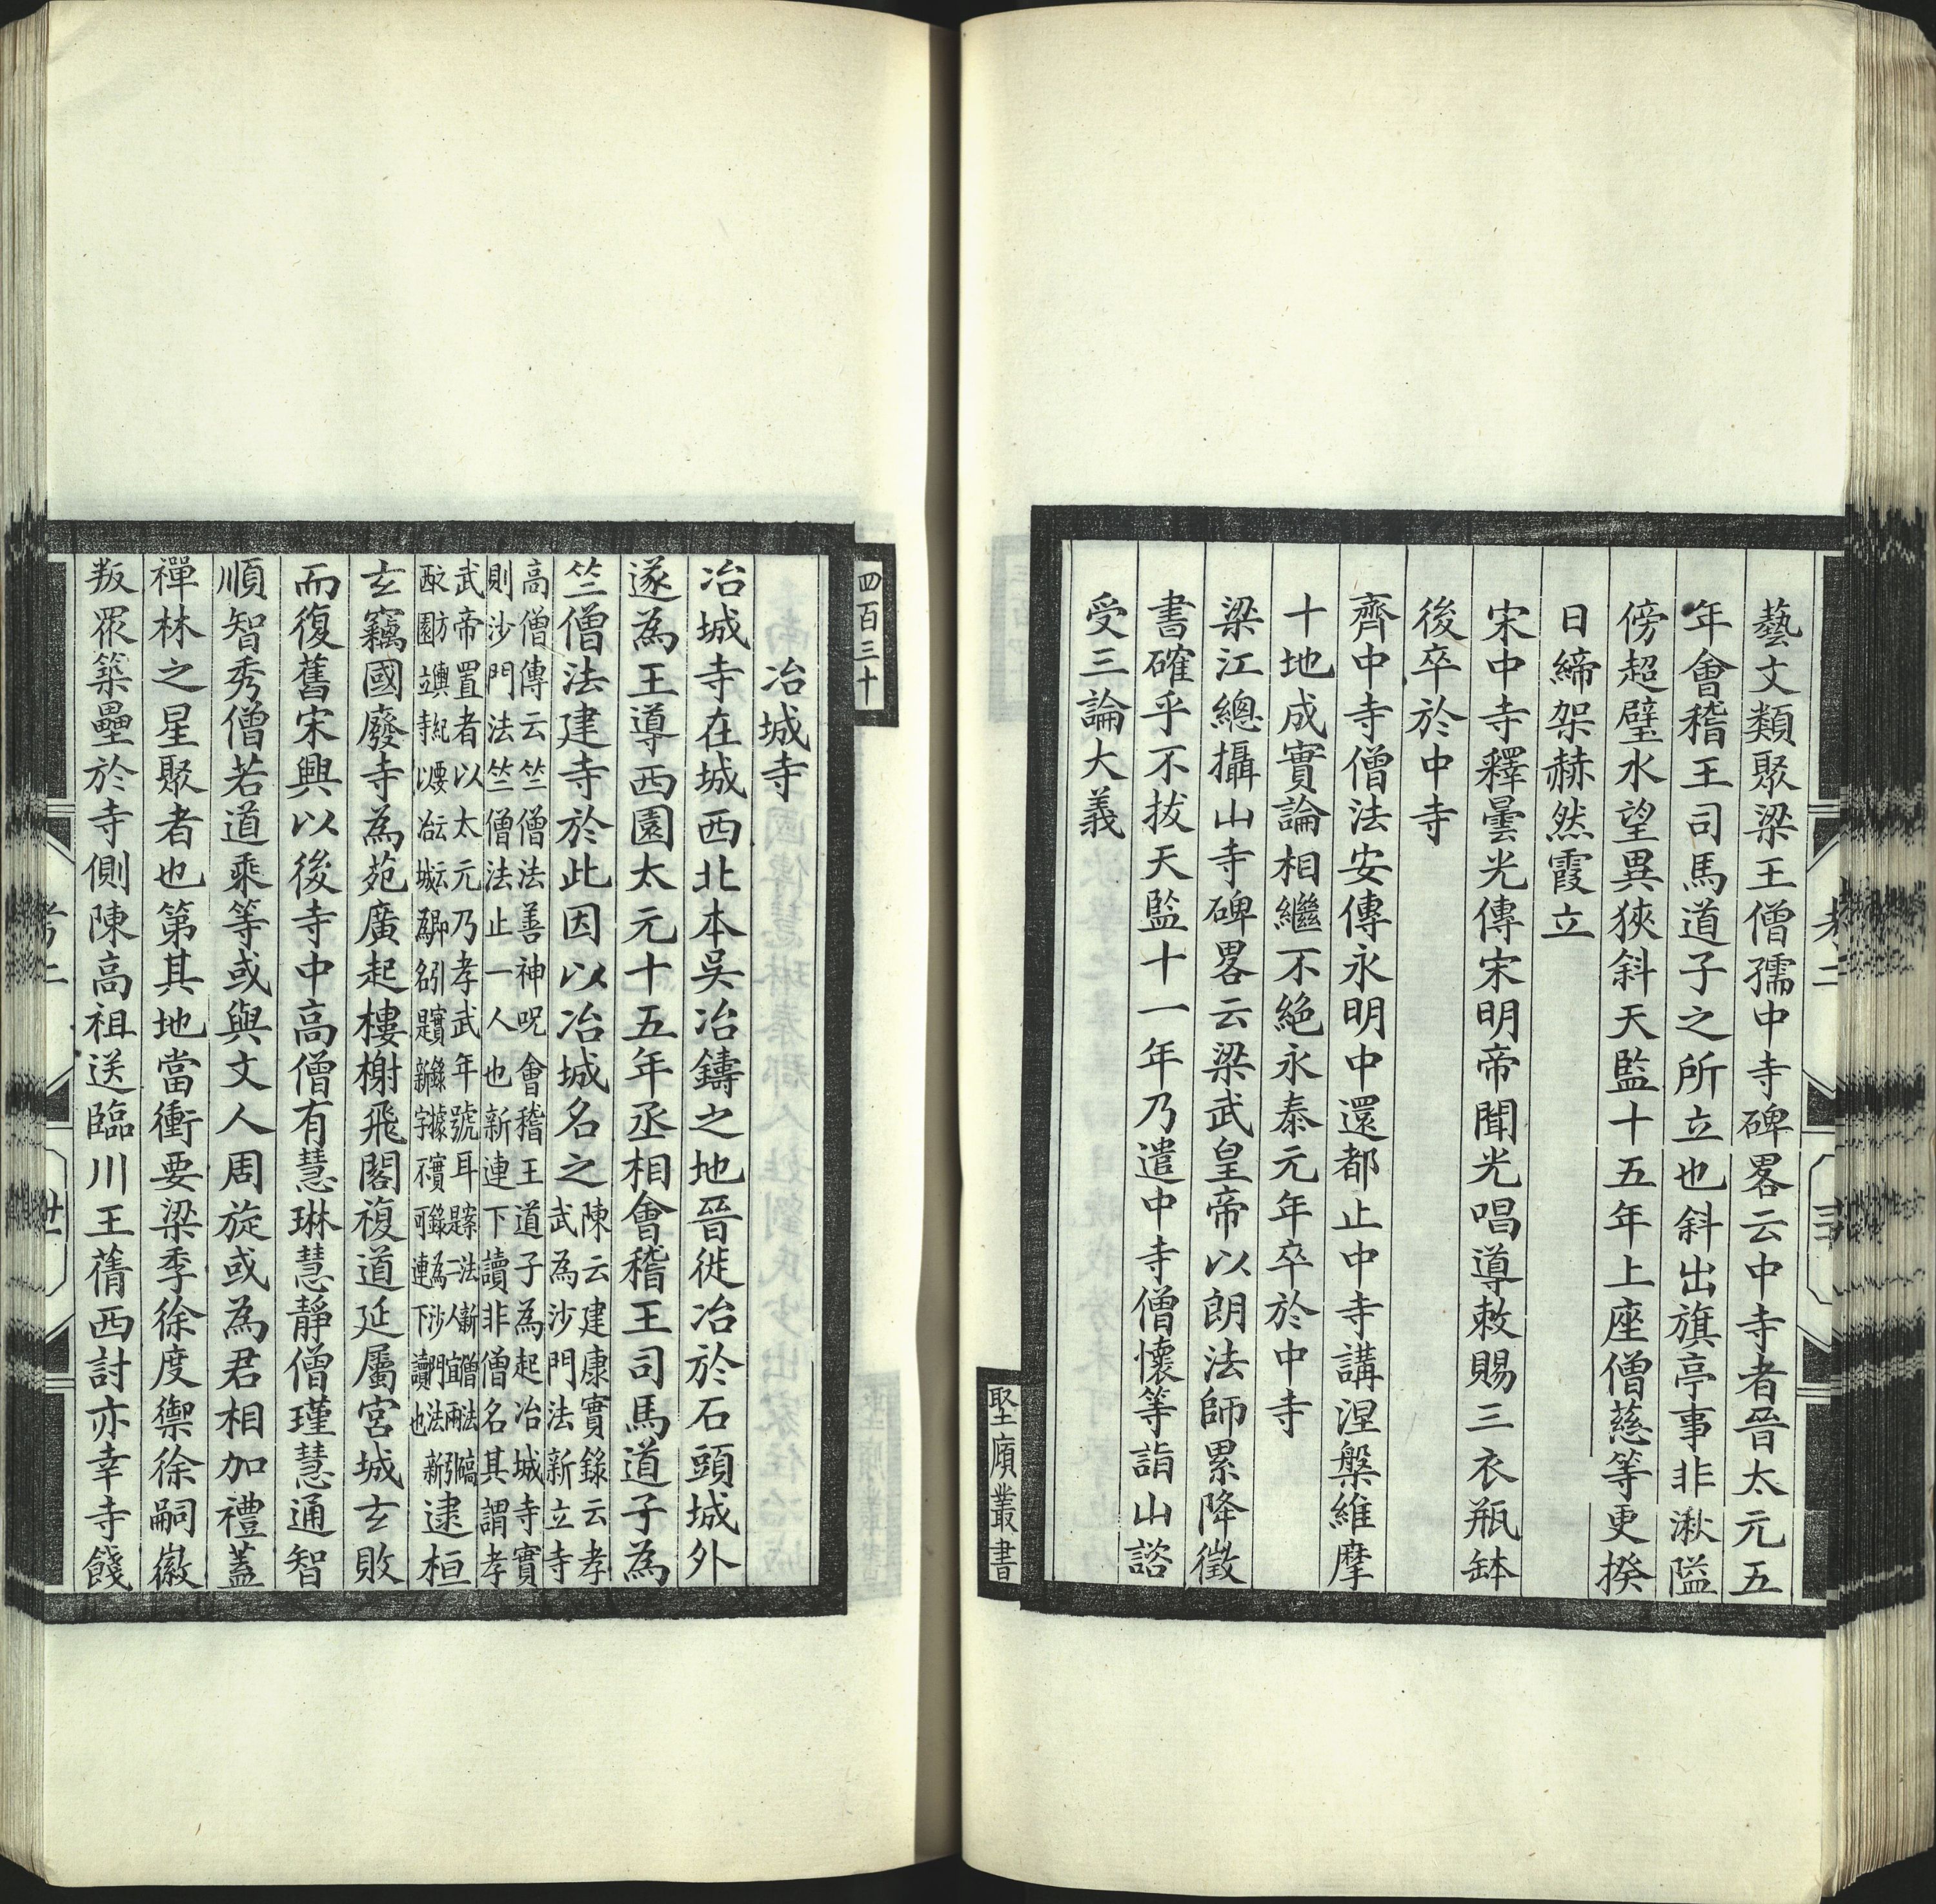 藝文類聚梁王僧孺中寺碑畧云中寺者晉太元五
年會稽王司馬道子之所立也斜出旗亭事非湫隘
傍超璧水望異狹斜天監十五年上座僧慈等更揆
日締架赫然霞立
宋中寺釋曇光傳宋明帝聞光唱導敕賜三衣瓶缽
後卒於中寺
齊中寺僧法安傳永明中還都止中寺講涅槃維摩
十地成實論相繼不絕永泰元年卒於中寺
梁江總攝山寺碑畧云梁武皇帝以朗法師累降徵
書確乎不拔天監十一年乃遣中寺僧懷等詣山諮
受三論大義
堅庼叢書
四百三十
冶城寺
冶城寺在城西北本吳冶鑄之地晉徙冶於石頭城外
遂為王導西園太元十五年丞相會稽王司馬道子為
竺僧法建寺於此因以冶城名之陳云建康實錄云孝
武為沙門法新立寺
高僧傳云竺僧法善神呪會稽王道子為起冶城寺實
則沙門法竺僧法止一人也新連下讀非僧名其謂孝
武帝置者以太元乃孝武年號耳
逮桓
玄竊國廢寺為苑廣起樓榭飛閣複道延屬宮城玄敗
而復舊宋興以後寺中高僧有慧琳慧靜僧瑾慧通智
順智秀僧若道乘等或與文人周旋或為君相加禮蓋
禪林之星聚者也第其地當衝要梁季徐度禦徐嗣徽
叛眾築壘於寺側陳高祖送臨川王蒨西討亦幸寺餞